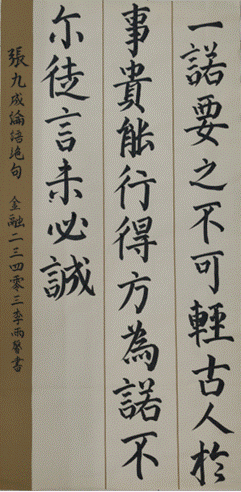 一諾要之不可輕古人於
事貴能行得方為諾不
尔徒言未必誠
張九成論語絕句 金融二三四零三李雨馨書